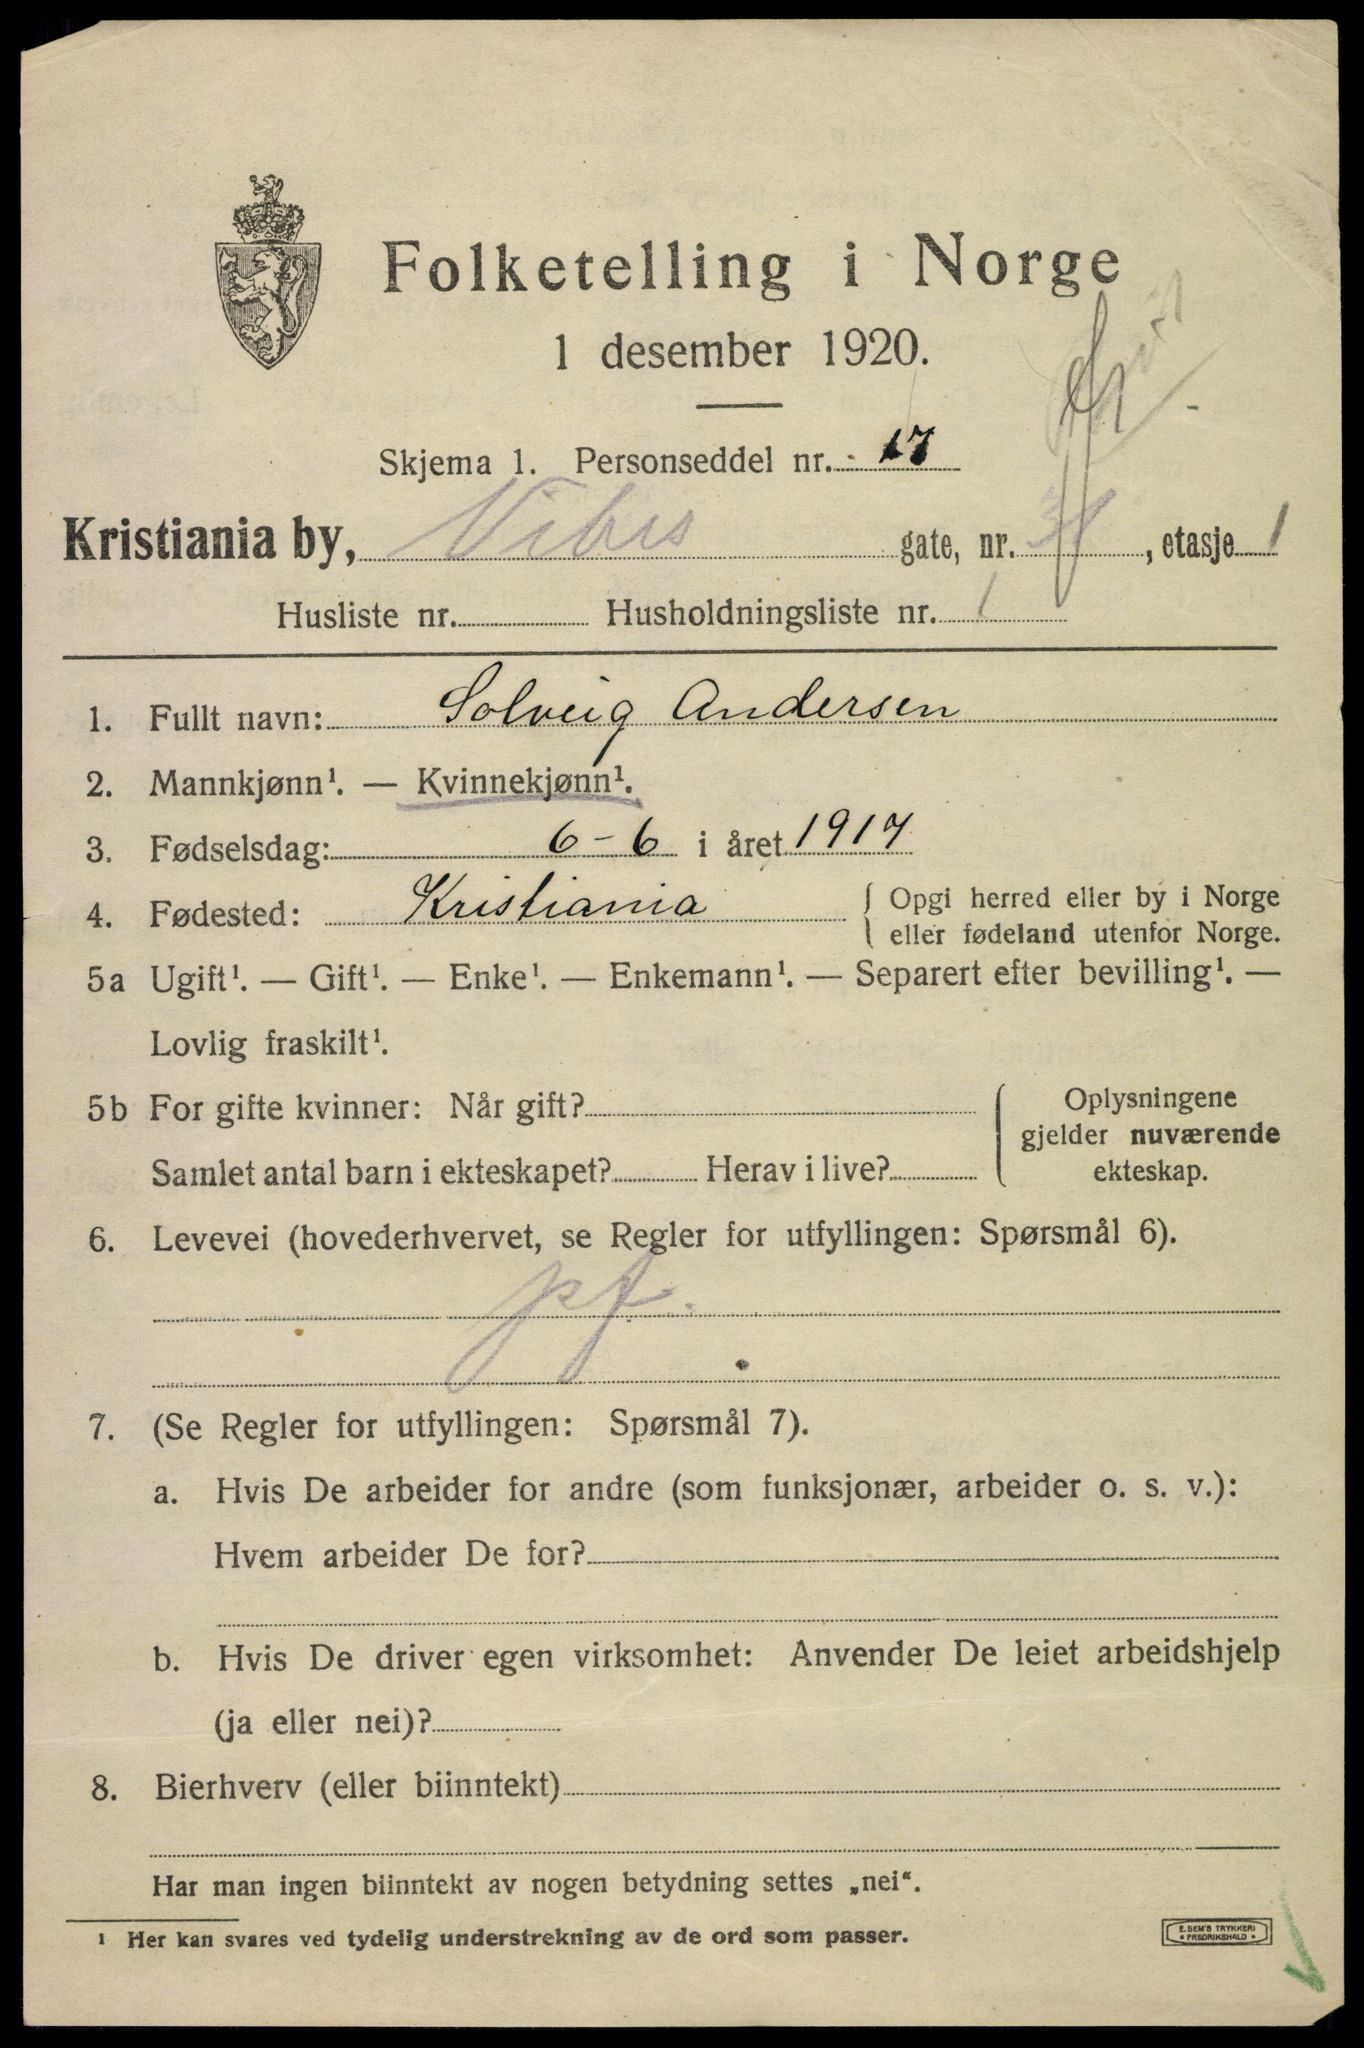 Folketelling i Norge
1 desember 1920.
Skjema 1. Personseddel nr. 17
Kristiania by, Vibes gate, nr. , etasje 1
Husliste nr. Husholdningsliste nr. 1
1. Fullt navn: Solveig Andersen
2. Mannkjønn¹. — Kvinnekjønn¹.
3. Fødselsdag: 6-6 i året 1917
4. Fødested: Kristiania { Opgi herred eller by i Norge
eller fødeland utenfor Norge.
5a Ugift¹. — Gift¹. — Enke¹. — Enkemann¹. — Separert efter bevilling¹. —
Lovlig fraskilt¹.
5b For gifte kvinner: Når gift? { Oplysningene
gjelder nuværende
Samlet antal barn i ekteskapet? Herav i live? ekteskap.
6. Levevei (hovederhvervet, se Regler for utfyllingen: Spørsmål 6).
pf.
7. (Se Regler for utfyllingen: Spørsmål 7).
a. Hvis De arbeider for andre (som funksjonær, arbeider o. s. v.):
Hvem arbeider De for?
b. Hvis De driver egen virksomhet: Anvender De leiet arbeidshjelp
(ja eller nei)?
8. Bierhverv (eller biinntekt)
Har man ingen biinntekt av nogen betydning settes „nei".
¹ Her kan svares ved tydelig understrekning av de ord som passer.
E. SEM'S TRYKKERI
* FREDRIKSHALD *